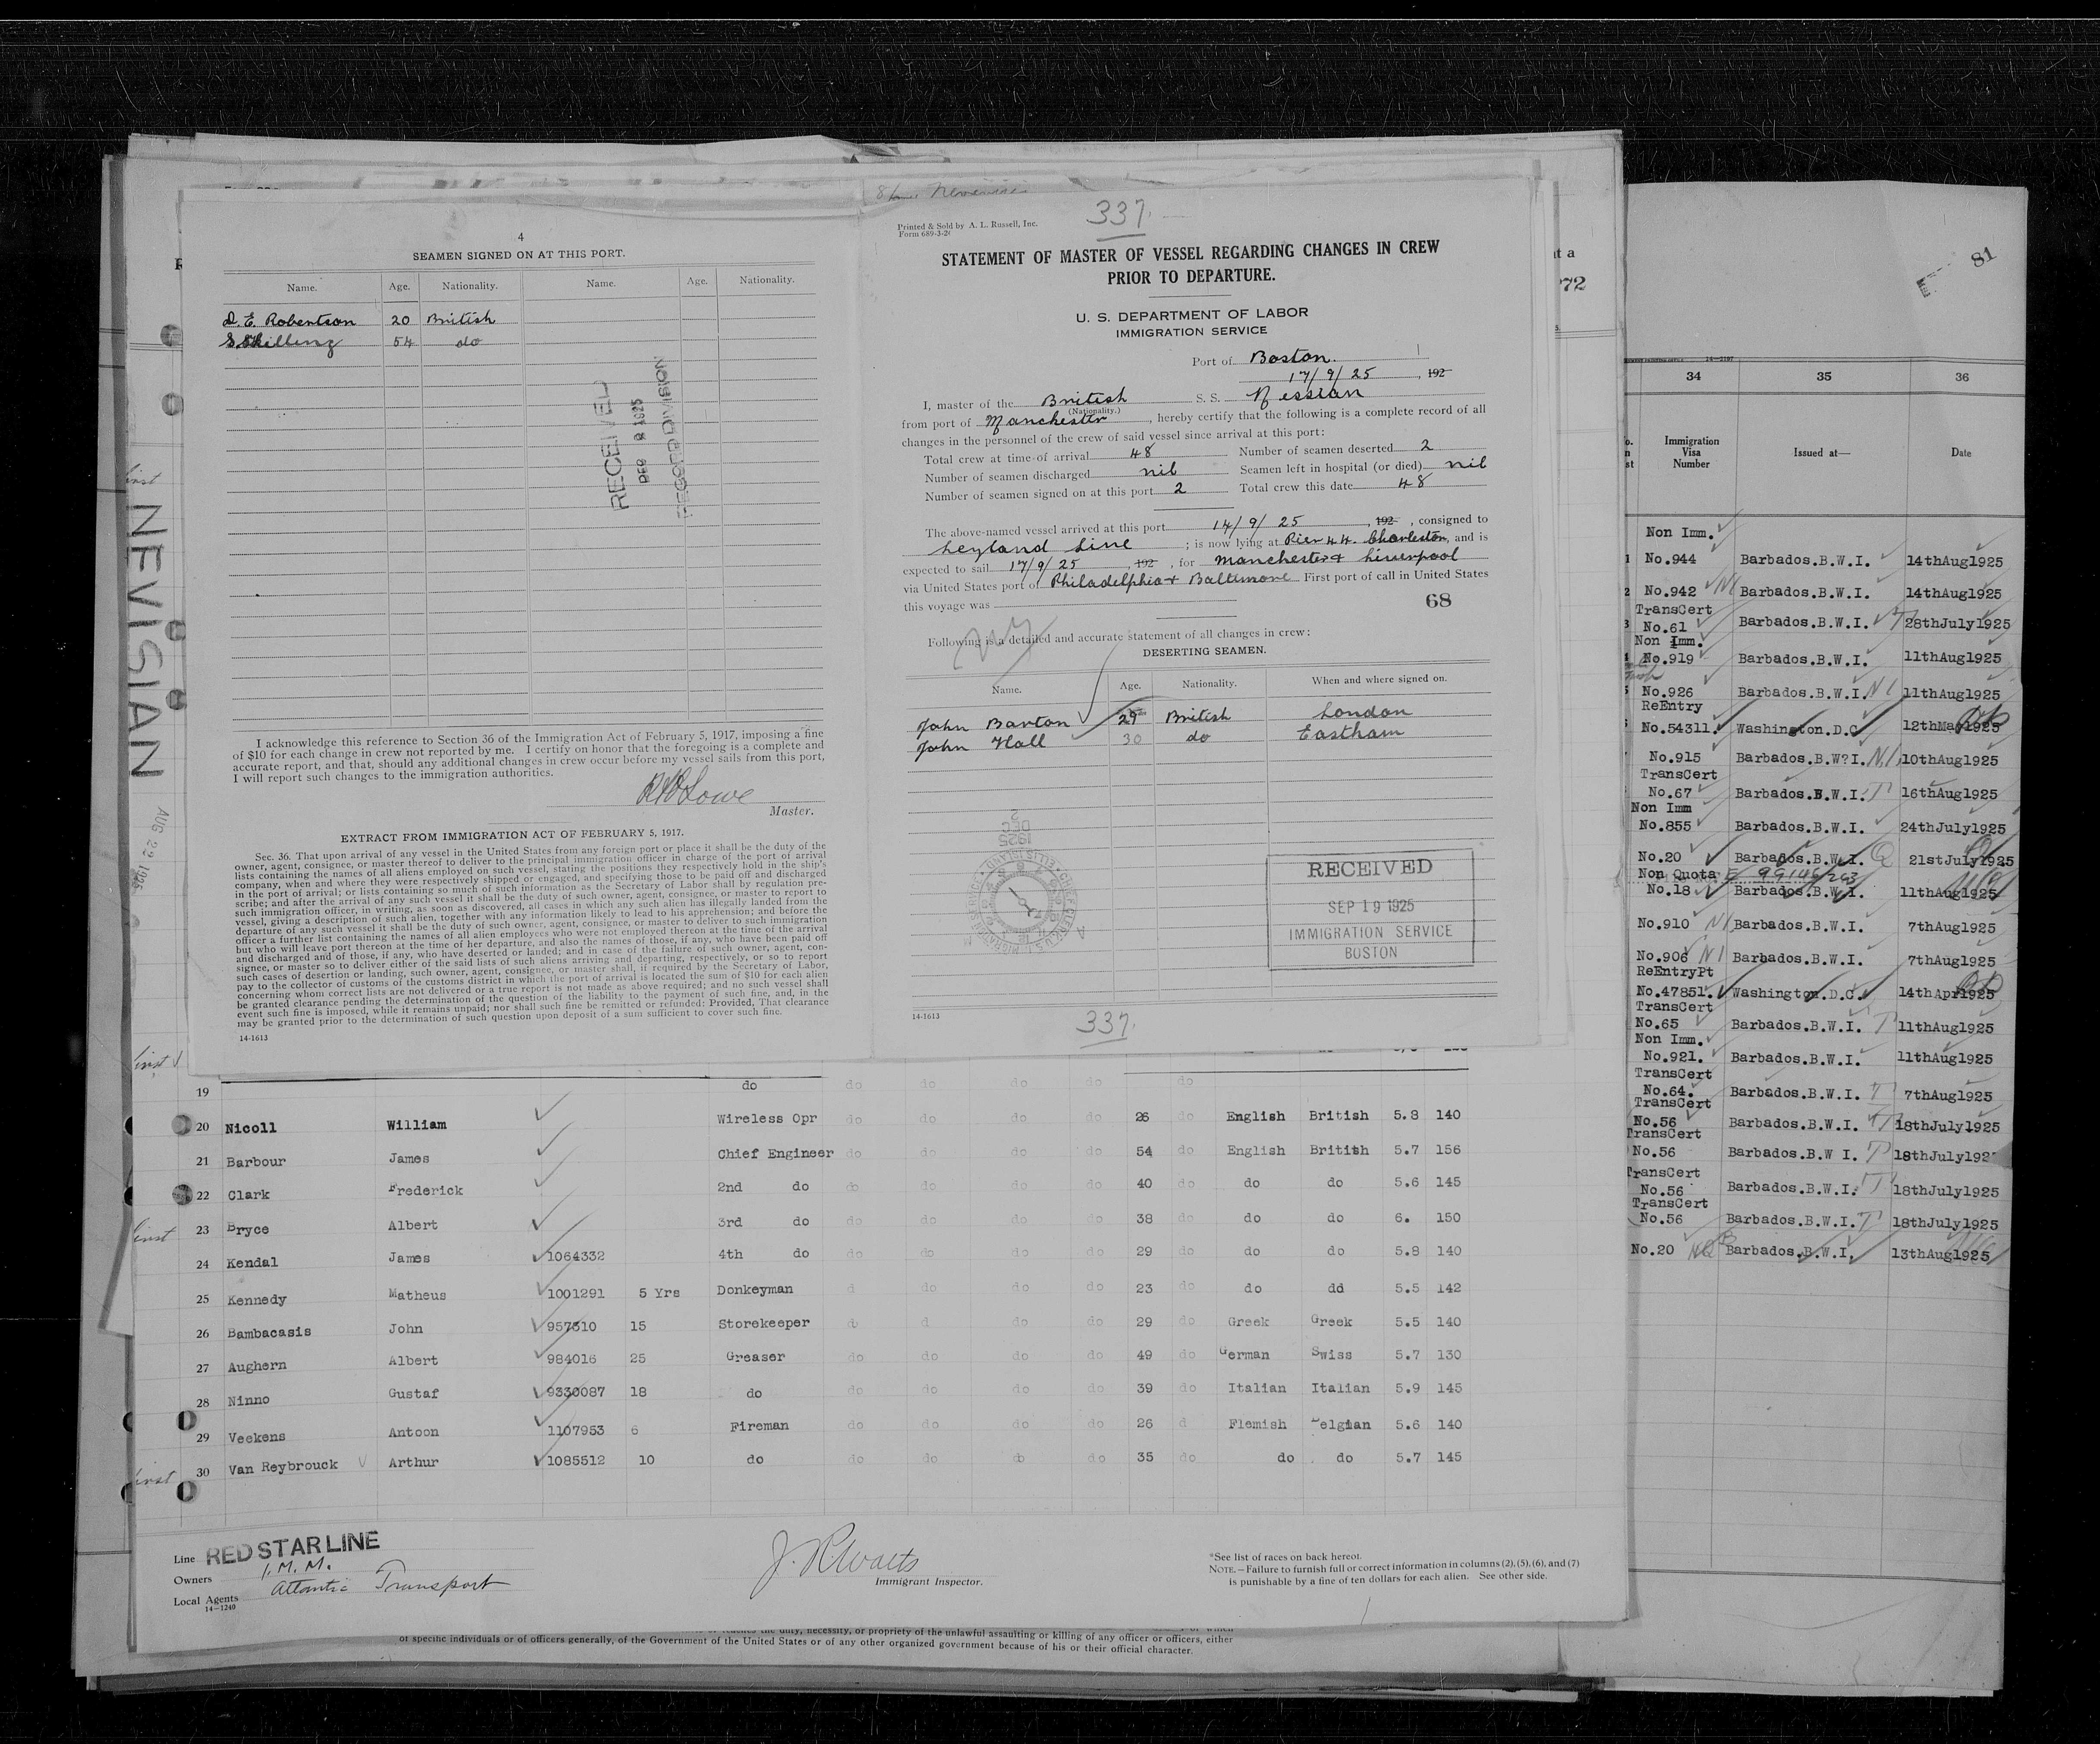 4
SEAMEN SIGNED ON AT THIS PORT.
Name. Age. Nationality. Name. Age. Nationality.
D. E. Robertson 20 British
S. Skilling 54 do
RECEIVED
DEC 8 1925
RECORD DIVISION
I acknowledge this reference to Section 36 of the Immigration Act of February 5, 1917, imposing a fine
of $10 for each change in crew not reported by me. I certify on honor that the foregoing is a complete and
accurate report, and that, should any additional changes in crew occur before my vessel sails from this port,
I will report such changes to the immigration authorities.
Lowe
Master.
EXTRACT FROM IMMIGRATION ACT OF FEBRUARY 5, 1917.
Sec. 36. That upon arrival of any vessel in the United States from any foreign port or place it shall be the duty of the
owner, agent, consignee, or master thereof to deliver to the principal immigration officer in charge of the port of arrival
lists containing the names of all aliens employed on such vessel, stating the positions they respectively hold in the ship's
company, when and where they were respectively shipped or engaged, and specifying those to be paid off and discharged
in the port of arrival; or lists containing so much of such information as the Secretary of Labor shall by regulation pre-
scribe; and after the arrival of any such vessel it shall be the duty of such owner, agent, consignee, or master to report to
such immigration officer, in writing, as soon as discovered, all cases in which any such alien has illegally landed from the
vessel, giving a description of such alien, together with any information likely to lead to his apprehension; and before the
departure of any such vessel it shall be the duty of such owner, agent, consignee, or master to deliver to such immigration
officer a further list containing the names of all alien employees who were not employed thereon at the time of the arrival
but who will leave port thereon at the time of her departure, and also the names of those, if any, who have been paid off
and discharged and of those, if any, who have deserted or landed; and in case of the failure of such owner, agent, con-
signee, or master so to deliver either of the said lists of such aliens arriving and departing, respectively, or so to report
such cases of desertion or landing, such owner, agent, consignee, or master shall, if required by the Secretary of Labor,
pay to the collector of customs of the customs district in which the port of arrival is located the sum of $10 for each alien
concerning whom correct lists are not delivered or a true report is not made as above required; and no such vessel shall
be granted clearance pending the determination of the question of the liability to the payment of such fine, and, in the
event such fine is imposed, while it remains unpaid; nor shall such fine be remitted or refunded: Provided, That clearance
may be granted prior to the determination of such question upon deposit of a sum sufficient to cover such fine.
14-1613
337.
Printed & Sold by A. L. Russell, Inc.
Form 689-3-2
STATEMENT OF MASTER OF VESSEL REGARDING CHANGES IN CREW
PRIOR TO DEPARTURE.
U. S. DEPARTMENT OF LABOR
IMMIGRATION SERVICE
Port of Boston.
17/9/25, 192
I, master of the British S. S. Nessian
(Nationality.)
from port of Manchester, hereby certify that the following is a complete record of all
changes in the personnel of the crew of said vessel since arrival at this port:
Total crew at time of arrival 48 Number of seamen deserted 2
Number of seamen discharged nil Seamen left in hospital (or died) nil
Number of seamen signed on at this port 2 Total crew this date 48
The above-named vessel arrived at this port 14/9/25, 192 , consigned to
Leyland Line ; is now lying at Pier 44. Charleston, and is
expected to sail 17/9/25, 192 , for Manchester & Liverpool
via United States port of Philadelphia + Baltimore First port of call in United States
this voyage was
68
Following is a detailed and accurate statement of all changes in crew:
DESERTING SEAMEN.
Name. Age. Nationality. When and where signed on.
John Barton 29 British London
John Hall 30 do Eastham
RECEIVED
SEP 19 1925
IMMIGRATION SERVICE
BOSTON
14-1613
337.
NEVISIAN
AUG 22 1925
19 do do do do do do
20 Nicoll William Wireless Opr do do do do 26 do English British 5.8 140
21 Barbour James Chief Engineer do do do do 54 do English British 5.7 156
22 Clark Frederick 2nd do do do do do 40 do do do 5.6 145
23 Bryce Albert 3rd do do do do do 38 do do do 6. 150
24 Kendal James 1064332 4th do do do do do 29 do do do 5.8 140
25 Kennedy Matheus 1001291 5 Yrs Donkeyman d do do do 23 do do dd 5.5 142
26 Bambacasis John 957510 15 Storekeeper d d do do 29 do Greek Greek 5.5 140
27 Aughern Albert 984016 25 Greaser do do do do 49 do German Swiss 5.7 130
28 Ninno Gustaf 9330087 18 do do do do do 39 do Italian Italian 5.9 145
29 Veekens Antoon 1107953 6 Fireman do do do do 26 d Flemish Belgian 5.6 140
30 Van Reybrouck Arthur 1085512 10 do do do do do 35 do do do 5.7 145
Line RED STAR LINE
Owners I. M. M.
Local Agents Atlantic Transport
14-1240
J. R. Watts
Immigrant Inspector.
*See list of races on back hereof.
NOTE.—Failure to furnish full or correct information in columns (2), (5), (6), and (7)
is punishable by a fine of ten dollars for each alien. See other side.
duty, necessity, or propriety of the unlawful assaulting or killing of any officer or officers, either
of specific individuals or of officers generally, of the Government of the United States or of any other organized government because of his or their official character.
t a
72
81
14-2197
34 35 36
Immigration Visa Number Issued at— Date
Non Imm.
No.944 Barbados.B.W.I. 14thAug1925
No.942 Barbados.B.W.I. 14thAug1925
TransCert
No.61 Barbados.B.W.I. 28thJuly1925
Non Imm.
No.919 Barbados.B.W.I. 11thAug1925
No.926 Barbados.B.W.I. 11thAug1925
ReEntry
No.54311. Washington.D.C 12thMar1925
No.915 Barbados.B.W?I. 10thAug1925
TransCert
No.67 Barbados.B.W.I. 16thAug1925
Non Imm
No.855 Barbados.B.W.I. 24thJuly1925
No.20 Barbados.B.W.I. 21stJuly1925
Non Quota
No.18 Barbados.B.W.I. 11thAug1925
No.910 Barbados.B.W.I. 7thAug1925
No.906 Barbados.B.W.I. 7thAug1925
ReEntryPt
No.47851. Washington.D.C. 14thApr1925
TransCert
No.65 Barbados.B.W.I. 11thAug1925
Non Imm.
No.921. Barbados.B.W.I. 11thAug1925
TransCert
No.64. Barbados.B.W.I. 7thAug1925
TransCert
No.56 Barbados.B.W.I. 18thJuly1925
TransCert
No.56 Barbados.B.W I. 18thJuly192
TransCert
No.56 Barbados.B.W.I. 18thJuly1925
TransCert
No.56 Barbados.B.W.I. 18thJuly1925
No.20 Barbados.B.W.I. 13thAug1925